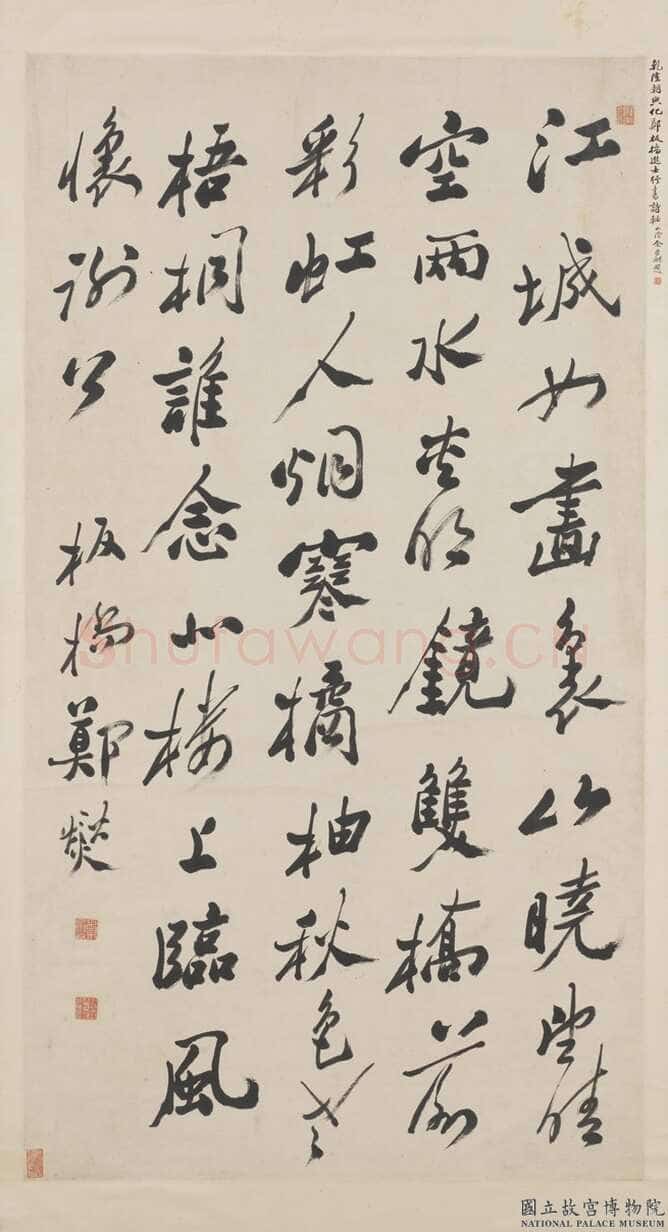 乾隆朝興化鄭板橋進士行書詩軸
江城如畫裏山曉望晴
空兩水夾明鏡雙橋落
彩虹人烟寒橘柚秋色老
梧桐誰念北樓上臨風
懷謝公 板橋鄭燮
Shufawang.CN
國立故宮博物院
NATIONAL PALACE MUSEUM